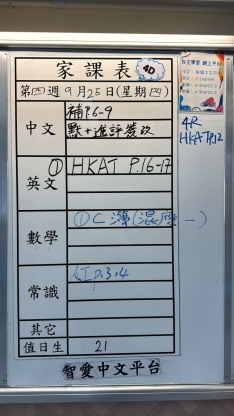 家課表 4D
第四週9月25日(星期四)
中文
補P.6-9
默+進評簽改
英文
① HKAT P.16-17
數學
常識
P.3,4
其它
值日生 21
智愛中文平台
自主學習 網上平台
4R
HKAT P.12